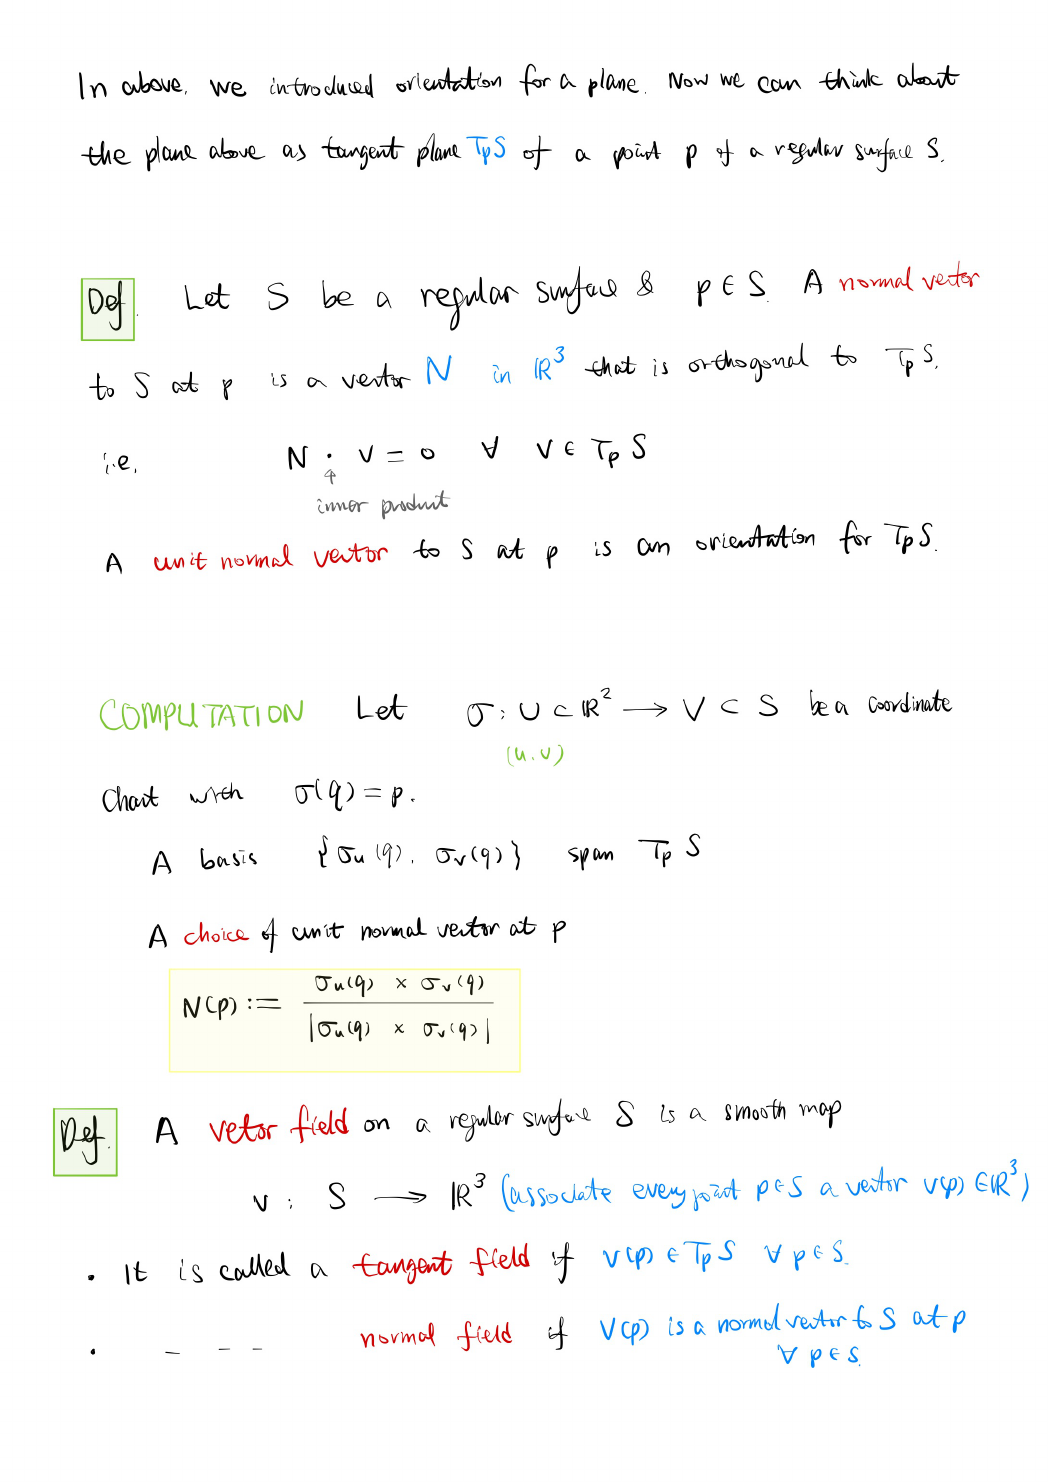 In above, we introduced orientation for a plane. Now we can think about
the plane above as tangent plane TpS of a point p of a regular surface S.
Def. Let S be a regular surface & p ∈ S. A normal vector
to S at p is a vector N in ℝ³ that is orthogonal to TpS.
i.e. N · v = 0 ∀ v ∈ TpS
↑
inner product
A unit normal vector to S at p is an orientation for TpS.
COMPUTATION Let σ: U ⊂ ℝ² → V ⊂ S be a coordinate
(u,v)
Chart with σ(q) = p.
A basis {σu(q), σv(q)} span TpS
A choice of unit normal vector at p
N(p) := σu(q) × σv(q) / |σu(q) × σv(q)|
Def. A vetor field on a regular surface S is a smooth map
v : S → ℝ³ (associate every point p∈S a vector v(p) ∈ ℝ³)
• It is called a tangent field if v(p) ∈ TpS ∀ p ∈ S.
• _ _ _ _ normal field if V(p) is a normal vector to S at p
∀ p ∈ S.